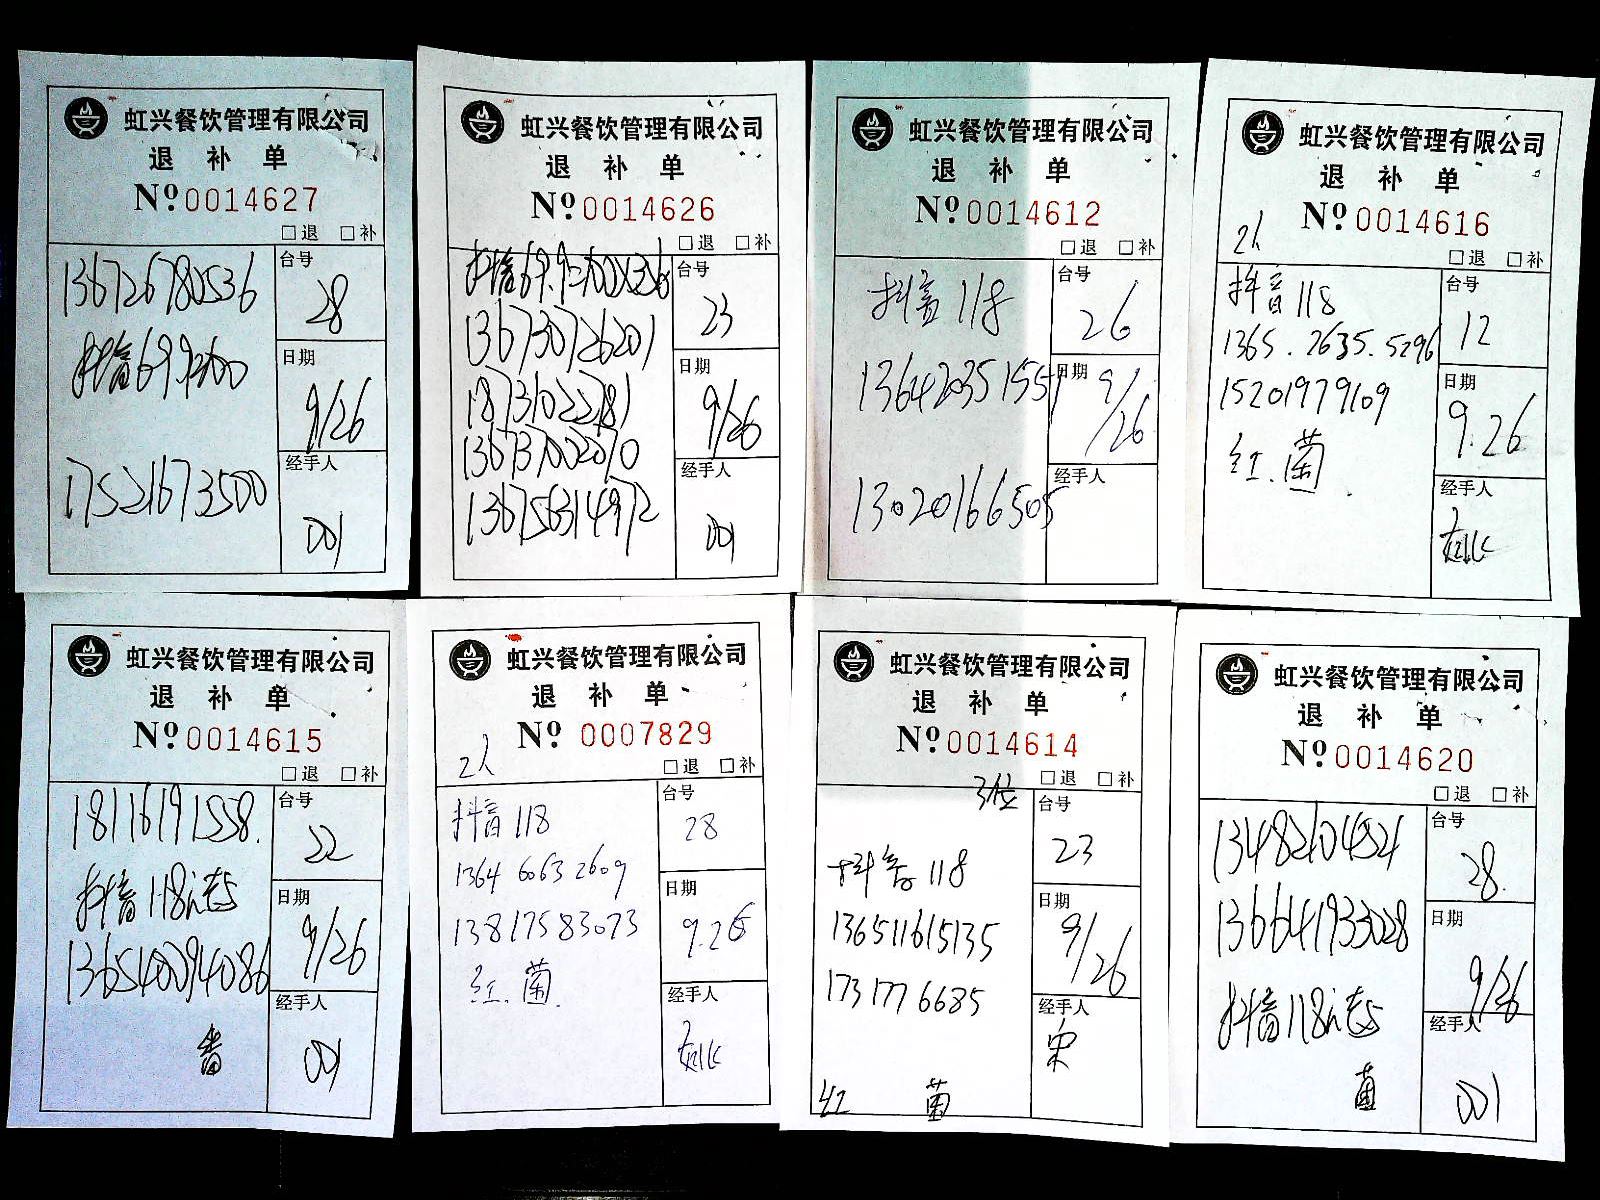 虹兴餐饮管理有限公司
退 补 单
№0014627
□退 □补
136726780536
抖音69.9
17521673500
台号
28
日期
9/26
经手人
001
虹兴餐饮管理有限公司
退 补 单
№0014626
□退 □补
抖音69.9
136730726201
18731022781
136737002070
136756314972
台号
23
日期
9/26
经手人
001
虹兴餐饮管理有限公司
退 补 单
№0014612
□退 □补
抖音118
136420351551
13020166505
台号
26
日期
9/26
经手人
虹兴餐饮管理有限公司
退 补 单
№0014616
2人
□退 □补
抖音118
1365.2635.5296
15201979109
红.菌
台号
12
日期
9.26
经手人
虹兴餐饮管理有限公司
退 补 单
№0014615
□退 □补
18116191558.
抖音118
136540094086
台号
22
日期
9/26
经手人
001
虹兴餐饮管理有限公司
退 补 单
№ 0007829
2人
□退 □补
抖音118
1364 6063 2609
13817583073
红.菌.
台号
28
日期
9.26
经手人
虹兴餐饮管理有限公司
退 补 单
№0014614
□退 □补
3位
抖音118
136511615135
1731776685
红 菌
台号
23
日期
9/26
经手人
宋
虹兴餐饮管理有限公司
退 补 单
№0014620
□退 □补
13482104521
136641933028
抖音118
菌
台号
28.
日期
9/26
经手人
001